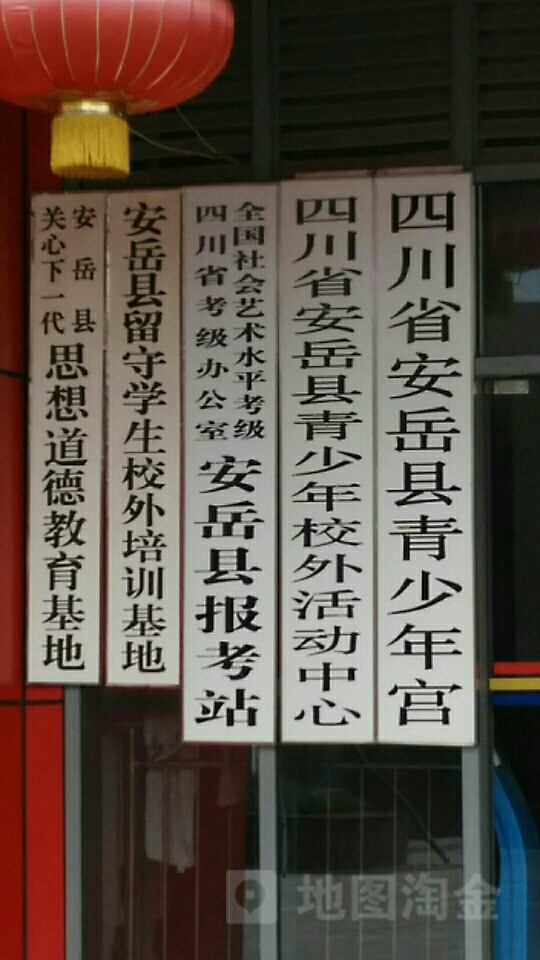 四川省安岳县青少年宫
四川省安岳县青少年校外活动中心
全国社会艺术水平考级
四川省考级办公室
安岳县报考站
安岳县留守学生校外培训基地
安岳县
关心下一代
思想道德教育基地
地图淘金